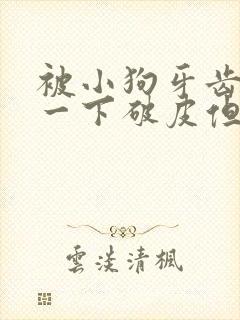 被小狗牙齿
一下破皮但
雲淡清楓